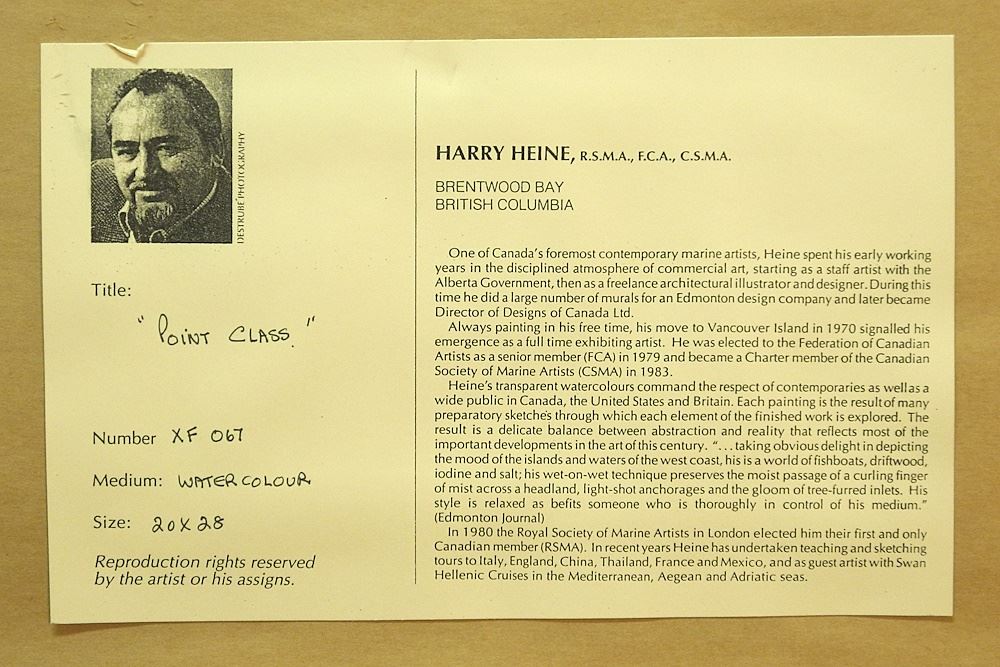 DESTRUBÉ PHOTOGRAPHY
Title:
"POINT CLASS."
Number XF 067
Medium: WATERCOLOUR
Size: 20 X 28
Reproduction rights reserved
by the artist or his assigns.
HARRY HEINE, R.S.M.A., F.C.A., C.S.M.A.
BRENTWOOD BAY
BRITISH COLUMBIA
One of Canada's foremost contemporary marine artists, Heine spent his early working
years in the disciplined atmosphere of commercial art, starting as a staff artist with the
Alberta Government, then as a freelance architectural illustrator and designer. During this
time he did a large number of murals for an Edmonton design company and later became
Director of Designs of Canada Ltd.
Always painting in his free time, his move to Vancouver Island in 1970 signalled his
emergence as a full time exhibiting artist. He was elected to the Federation of Canadian
Artists as a senior member (FCA) in 1979 and became a Charter member of the Canadian
Society of Marine Artists (CSMA) in 1983.
Heine's transparent watercolours command the respect of contemporaries as well as a
wide public in Canada, the United States and Britain. Each painting is the result of many
preparatory sketches through which each element of the finished work is explored. The
result is a delicate balance between abstraction and reality that reflects most of the
important developments in the art of this century. "... taking obvious delight in depicting
the mood of the islands and waters of the west coast, his is a world of fishboats, driftwood,
iodine and salt; his wet-on-wet technique preserves the moist passage of a curling finger
of mist across a headland, light-shot anchorages and the gloom of tree-furred inlets. His
style is relaxed as befits someone who is thoroughly in control of his medium."
(Edmonton Journal)
In 1980 the Royal Society of Marine Artists in London elected him their first and only
Canadian member (RSMA). In recent years Heine has undertaken teaching and sketching
tours to Italy, England, China, Thailand, France and Mexico, and as guest artist with Swan
Hellenic Cruises in the Mediterranean, Aegean and Adriatic seas.